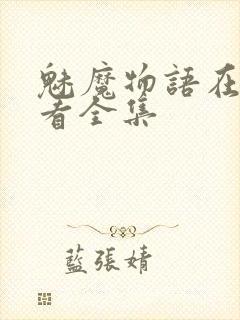 魅魔物語在
者全集
藍張婧